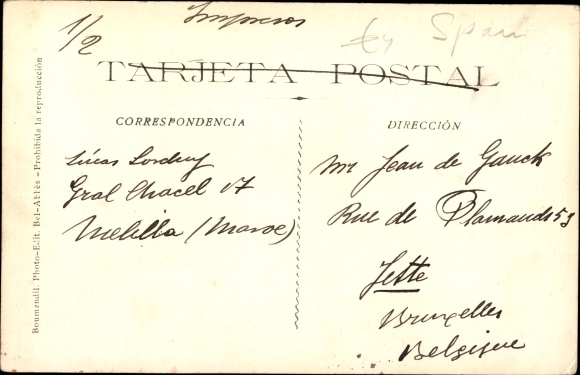 1/2
Impresos
Ex Spain
TARJETA POSTAL
CORRESPONDENCIA
Lucas
Gral Chacel 17
Melilla (Maroc)
DIRECCIÓN
Mr Jean de Ganck
Rue de Flamands 59
Jette
Bruxelles
Belgique
Boumendil. Photo-Edit. Bel-Abbès - Prohibida la reproducción